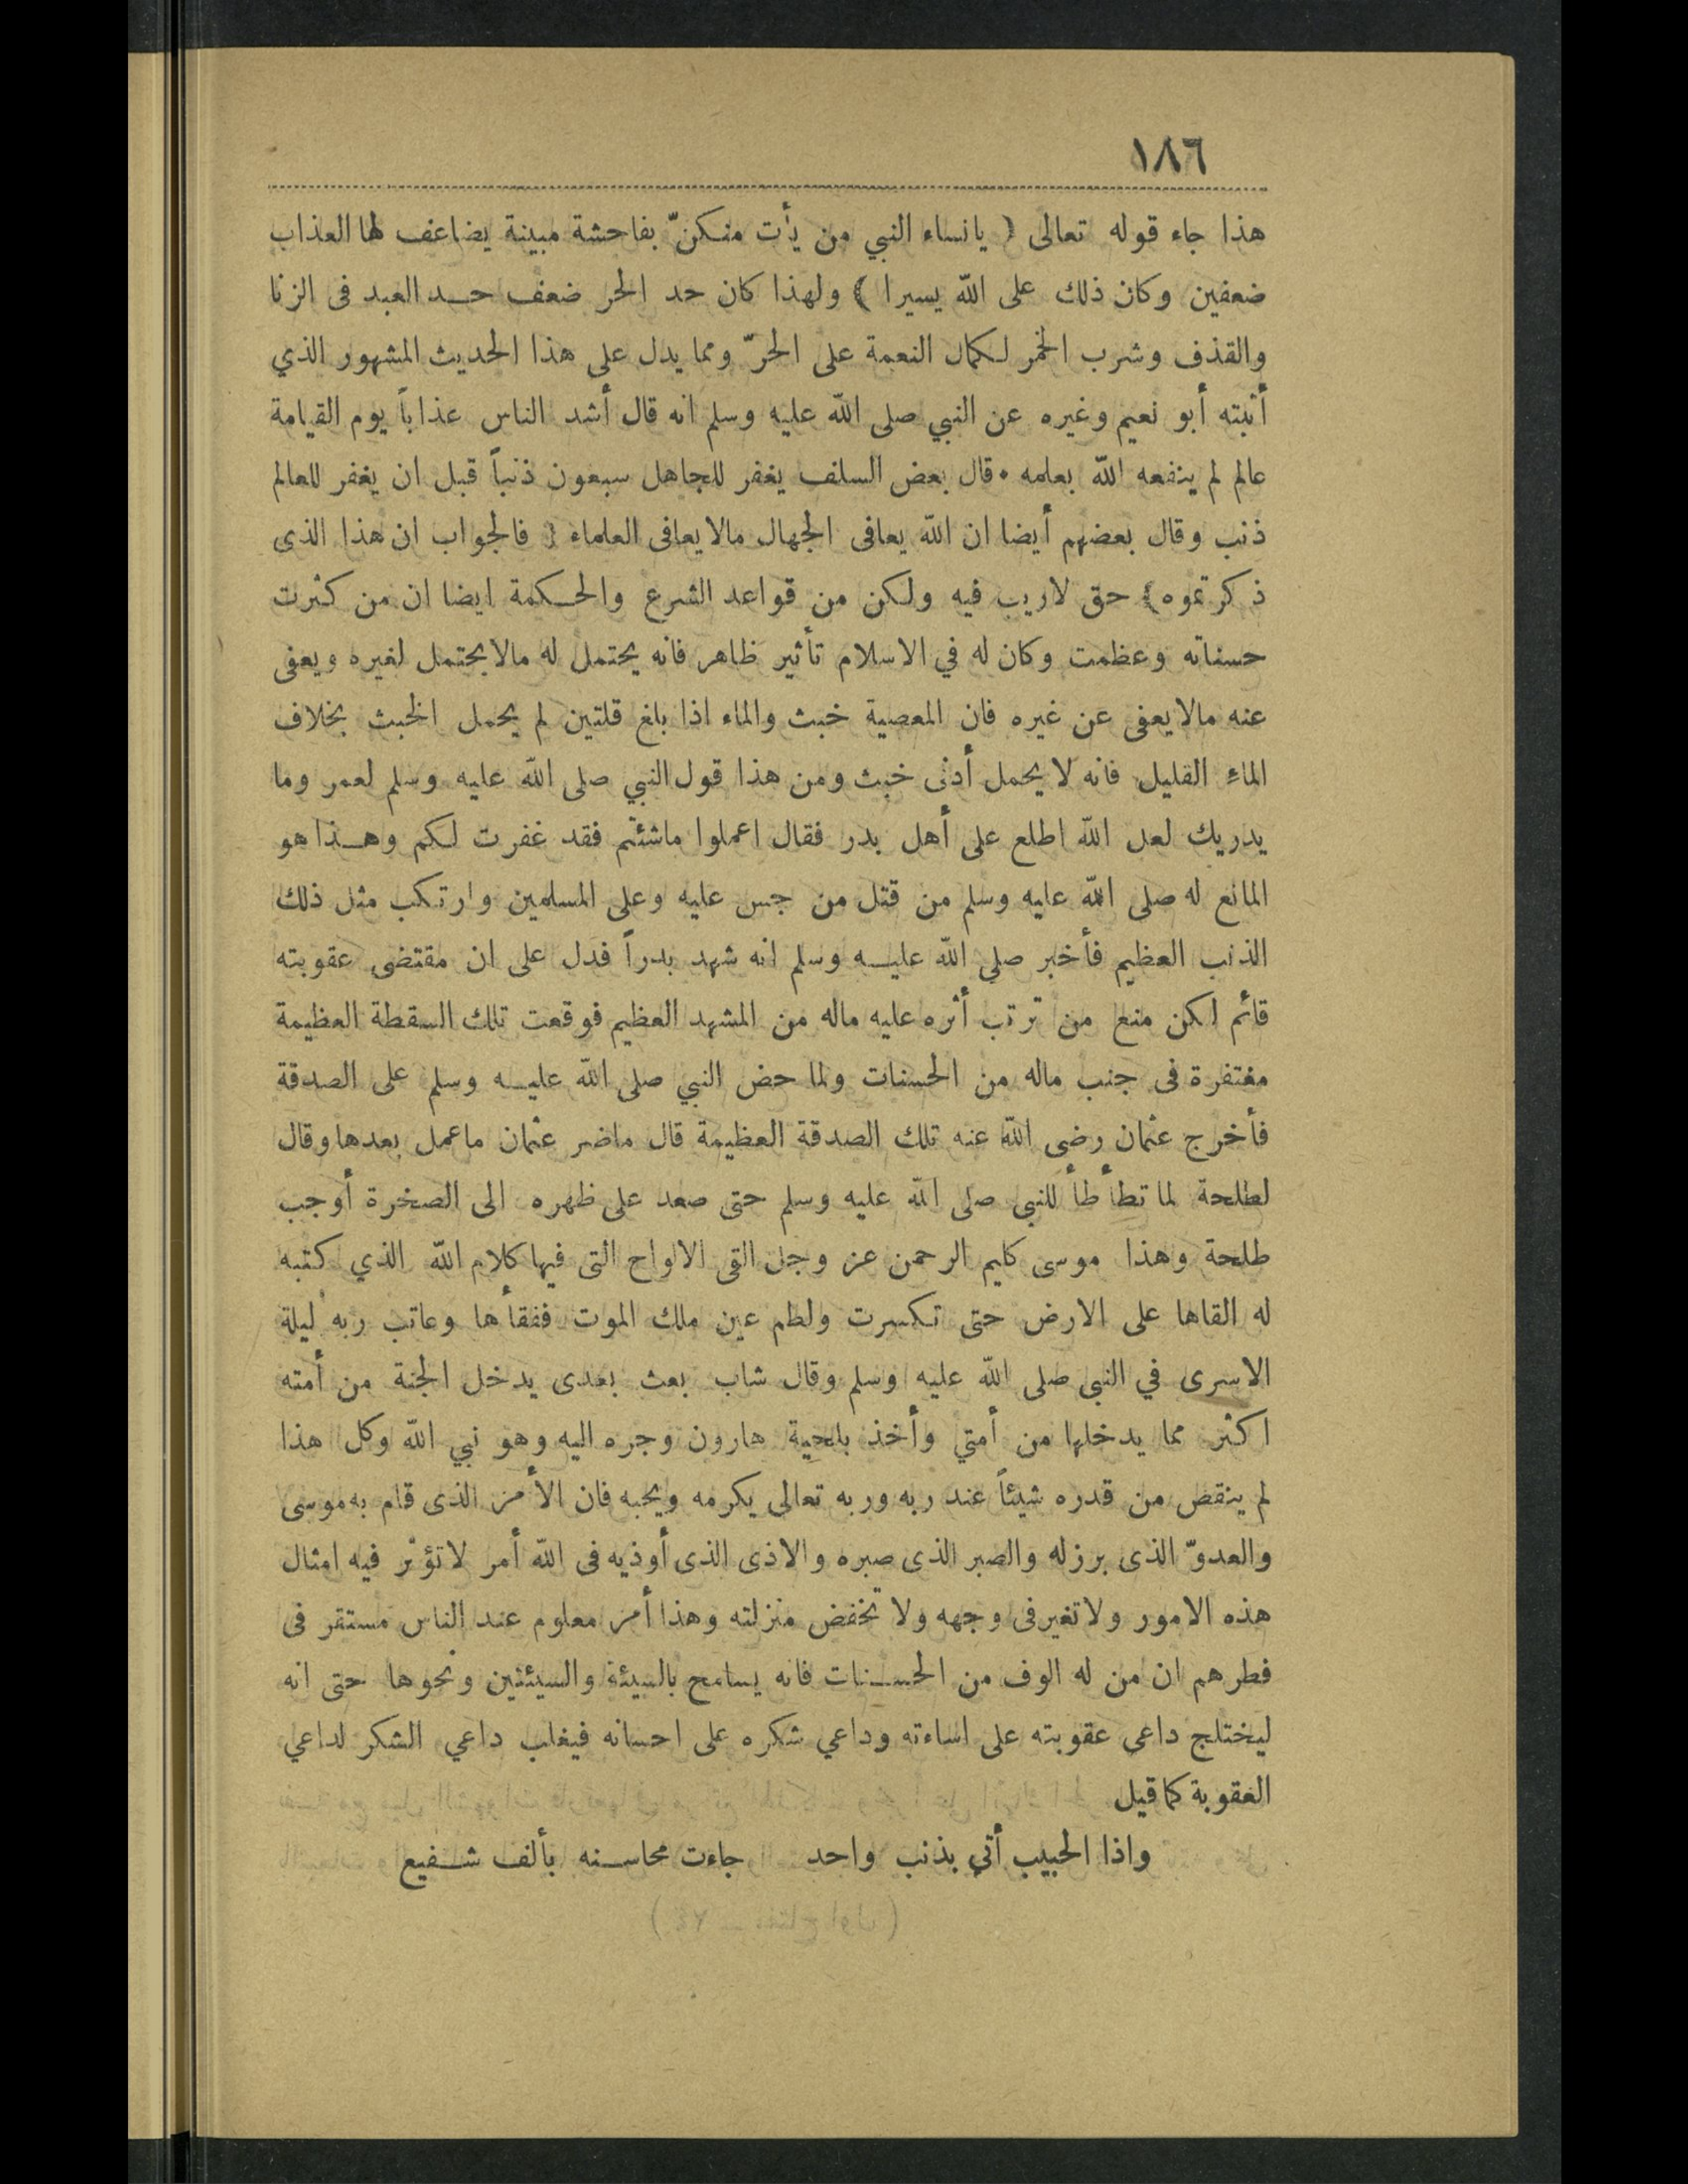 ١٨٦
هذا جاء قوله تعالى ( يانساء النبي من يأت منكنّ بفاحشة مبينة يضاعف لها العذاب
ضعفين وكان ذلك على الله يسيرا ) ولهذا كان حد الحر ضعف حد العبد فى الزنا
والقذف وشرب الخمر لكمال النعمة على الحرّ ومما يدل على هذا الحديث المشهور الذي
أثبته أبو نعيم وغيره عن النبي صلى الله عليه وسلم انه قال أشد الناس عذاباً يوم القيامة
عالم لم ينفعه الله بعلمه • قال بعض السلف يغفر للجاهل سبعون ذنباً قبل ان يغفر للعالم
ذنب وقال بعضهم أيضا ان الله يعافى الجهال مالا يعافى العلماء ( فالجواب ان هذا الذى
ذكرتموه) حق لاريب فيه ولكن من قواعد الشرع والحكمة ايضا ان من كثرت
حسناته وعظمت وكان له في الاسلام تأثير ظاهر فانه يحتمل له مالا يحتمل لغيره ويعفى
عنه مالا يعفى عن غيره فان المعصية خبث والماء اذا بلغ قلتين لم يحمل الخبث بخلاف
الماءِ القليل فانه لا يحمل أدنى خبث ومن هذا قول النبي صلى الله عليه وسلم لعمر وما
يدريك لعل الله اطلع على أهل بدر فقال اعملوا ماشئتم فقد غفرت لكم وهذا هو
المانع له صلى الله عليه وسلم من قتل من جس عليه وعلى المسلمين وارتكب مثل ذلك
الذنب العظيم فأخبر صلى الله عليه وسلم انه شهد بدراً فدل على ان مقتضى عقوبته
قائم لكن منع من ترتب أثره عليه ماله من المشهد العظيم فوقعت تلك السقطة العظيمة
مغتفرة فى جنب ماله من الحسنات ولما حض النبي صلى الله عليه وسلم على الصدقة
فأخرج عثمان رضى الله عنه تلك الصدقة العظيمة قال ماضر عثمان ماعمل بعدها وقال
لطلحة لما تطأطأ للنبى صلى الله عليه وسلم حتى صعد على ظهره الى الصخرة أوجب
طلحة وهذا موسى كليم الرحمن عز وجل القى الالواح التى فيها كلام الله الذي كتبه
له القاها على الارض حتى تكسرت ولطم عين ملك الموت ففقأها وعاتب ربه ليلة
الاسرى في النبى صلى الله عليه وسلم وقال شاب بعث بعدى يدخل الجنة من أمته
اكثر مما يدخلها من أمتي وأخذ بلحية هارون وجره اليه وهو نبي الله وكل هذا
لم ينقص من قدره شيئاً عند ربه وربه تعالى يكرمه ويحبه فان الأمر الذى قام به موسى
والعدوّ الذى برز له والصبر الذى صبره والاذى الذى أوذيه فى الله أمر لا تؤثر فيه امثال
هذه الامور ولا تغير فى وجهه ولا تخفض منزلته وهذا أمر معلوم عند الناس مستقر فى
فطرهم ان من له الوف من الحسنات فانه يسامح بالسيئة والسيئتين ونحوها حتى انه
ليختلج داعى عقوبته على اساءته وداعي شكره على احسانه فيغلب داعي الشكر لداعي
العقوبة كما قيل
واذا الحبيب أتي بذنب واحد جاءت محاسنه بألف شفيع